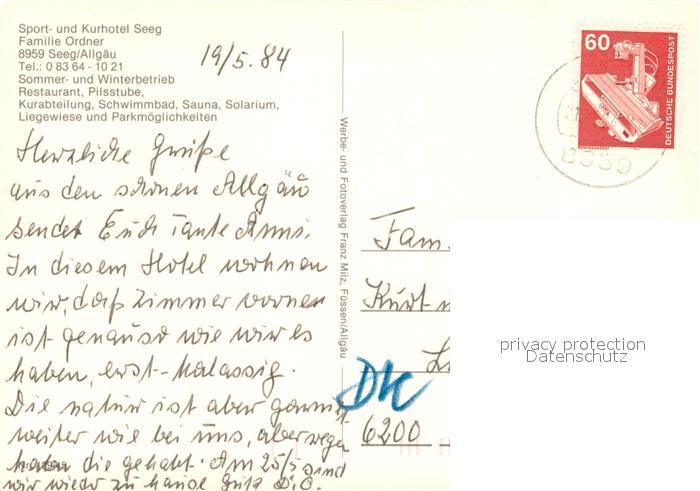 Sport- und Kurhotel Seeg
Familie Ordner
8959 Seeg/Allgäu
Tel.: 0 83 64 - 10 21
Sommer- und Winterbetrieb
Restaurant, Pilsstube,
Kurabteilung, Schwimmbad, Sauna, Solarium,
Liegewiese und Parkmöglichkeiten
19/5. 84
Herzliche Grüße
aus den schönen Allgäu
sendet Euch Tante Anni.
In diesem Hotel wohnen
wir, das Zimmer vornen
ist genauso wie wir es
haben, erst-klassig.
Die natur ist aber
weiter wie bei uns, aber
haben die gehabt. Am 25/5 sind
wir wieder zu hause
Werbe- und Fotoverlag Franz Milz, Füssen/Allgäu
60
DEUTSCHE BUNDESPOST
8959
Fam.
Kurt
DK
6200
privacy protection
Datenschutz